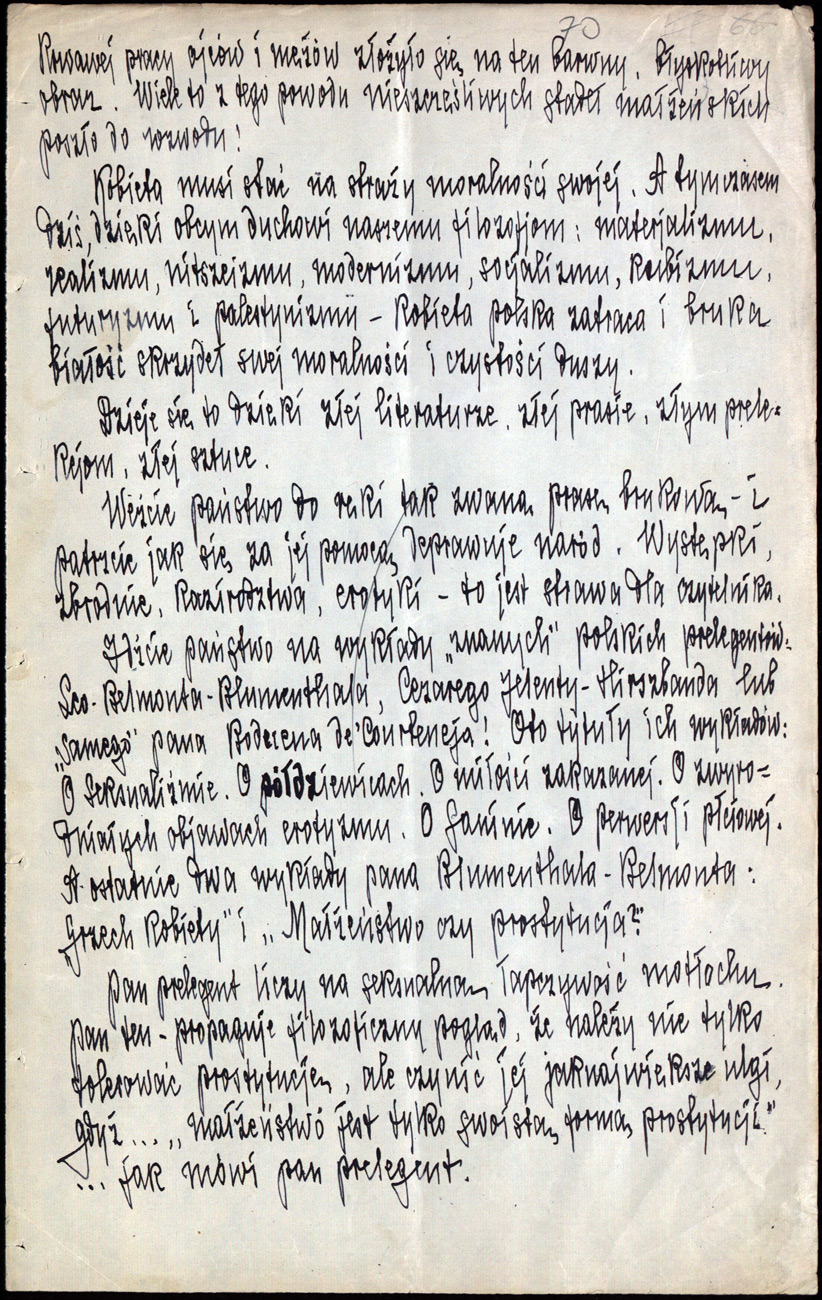 70
Krwawej pracy ojców i mężów złożyło się na ten barwny, błyskotliwy
obraz. Wiele to z tego powodu nieszczęśliwych stadeł małżeńskich
poszło do rozwodu!
Kobieta musi stać na straży moralności swojej. A tymczasem
dziś, dzięki obcym duchowi naszemu filozofjom: materjalizmu,
realizmu, nitszeizmu, modernizmu, socjalizmu, kubizmu,
futuryzmu i palestynizmu – kobieta polska zatraca i bruka
białość skrzydeł swej moralności i czystości duszy.
Dzieje się to dzięki złej literaturze, złej prasie, złym prele=
kcjom, złej sztuce.
Weźcie państwo do ręki tak zwaną prasę brukową – i
patrzcie jak się za jej pomocą deprawuje naród. Występki,
zbrodnie, kazirodztwa, erotyki – to jest strawa dla czytelnika.
Idźcie państwo na wykłady „znanych" polskich prelegentów:
Leo-Belmonta-Blumenthala, Cezarego Jelenty-Hirszbanda lub
„samego" pana Boduena de'Courteneja! Oto tytuły ich wykładów:
O seksualiźmie. O półdziewicach. O miłości zakazanej. O zwyro=
dniałych objawach erotyzmu. O Saninie. O perwersji płciowej.
A ostatnie dwa wykłady pana Blumenthala-Belmonta:
„Grzech kobiety" i „Małżeństwo czy prostytucja?"
Pan prelegent liczy na seksualną łapczywość motłochu.
Pan ten – propaguje filozoficzny pogląd, że należy nie tylko
tolerować prostytucję, ale czynić jej jaknajwiększe ulgi,
gdyż... „małżeństwo jest tylko swoistą formą prostytucji."
... jak mówi pan prelegent.